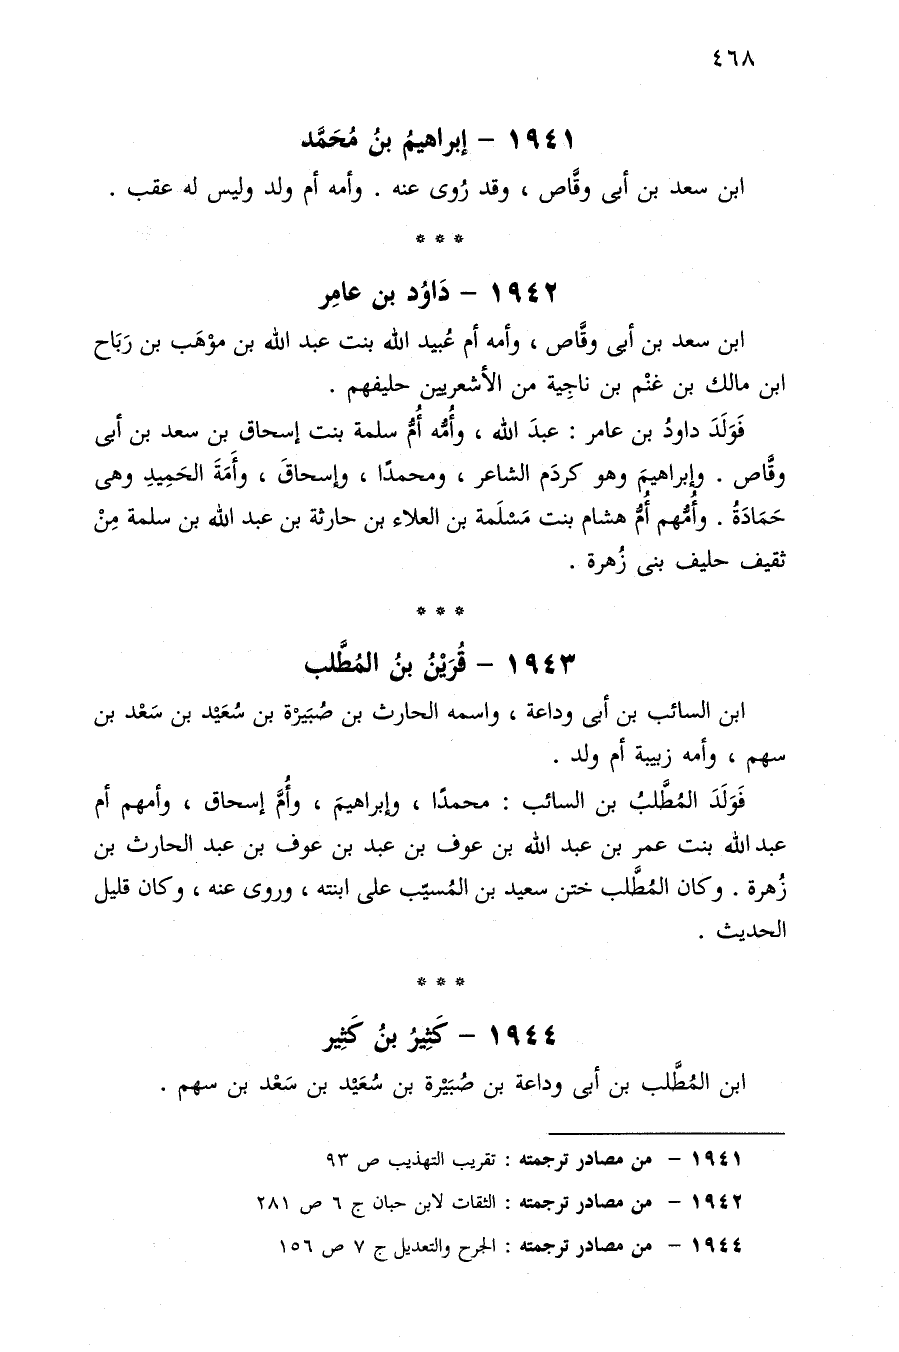 ٤٦٨
١٩٤١ – إبراهيمُ بنُ مُحَمَّد
ابن سعد بن أبى وقَّاص ، وقد رُوى عنه . وأمه أم ولد وليس له عقب .
* * *
١٩٤٢ – دَاوُد بن عامِر
ابن سعد بن أبى وقَّاص ، وأمه أم عُبيد الله بنت عبد الله بن موْهَب بن رَبَاح
ابن مالك بن غنْم بن ناجِية من الأشعريين حليفهم .
فَوَلَدَ داودُ بن عامر : عبدَ الله ، وأُمُّه أُمُّ سلمة بنت إسحاق بن سعد بن أبى
وقَّاص . وإبراهيمَ وهو كردَم الشاعر ، ومحمدًا ، وإسحاقَ ، وأَمَةَ الحَمِيدِ وهى
حَمَادَةُ . وأُمُّهم أُمُّ هشام بنت مَسْلَمة بن العلاء بن حارثة بن عبد الله بن سلمة مِنْ
ثقيف حليف بنى زُهرة .
* * *
١٩٤٣ – قُرَيْنُ بنُ المُطَّلب
ابن السائب بن أبى وداعة ، واسمه الحارث بن صُبَيَرْة بن سُعَيْد بن سَعْد بن
سهم ، وأمه زبيبة أم ولد .
فَوَلَدَ المُطَّلبُ بن السائب : محمدًا ، وإبراهيمَ ، وأُمَّ إسحاق ، وأمهم أم
عبد الله بنت عمر بن عبد الله بن عوف بن عبد بن عوف بن عبد الحارث بن
زُهرة . وكان المُطَّلب ختن سعيد بن المُسيّب على ابنته ، وروى عنه ، وكان قليل
الحديث .
* * *
١٩٤٤ – كَثِيرُ بنُ كَثِير
ابن المُطَّلب بن أبى وداعة بن صُبَيْرة بن سُعَيْد بن سَعْد بن سهم .
١٩٤١ – من مصادر ترجمته : تقريب التهذيب ص ٩٣
١٩٤٢ – من مصادر ترجمته : الثقات لابن حبان ج ٦ ص ٢٨١
١٩٤٤ – من مصادر ترجمته : الجرح والتعديل ج ٧ ص ١٥٦